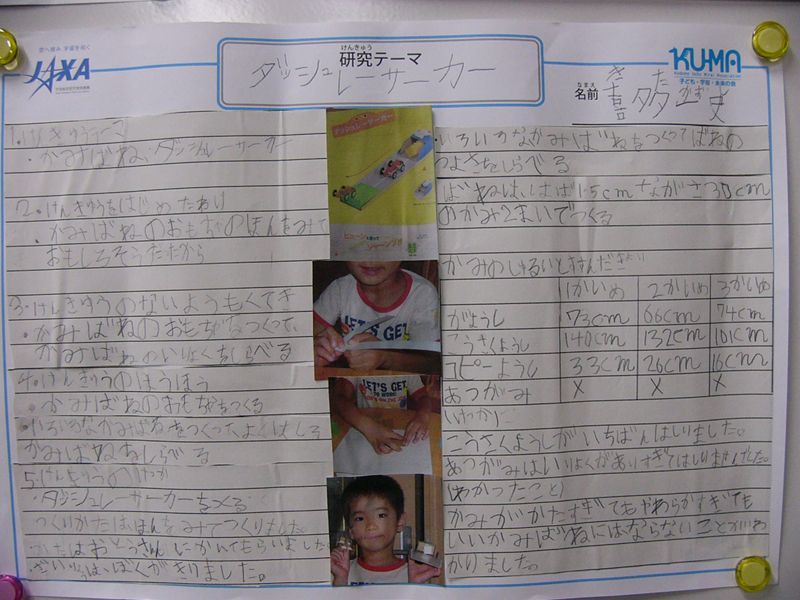 JAXA
けんきゅう
研究テーマ
ダッシュレーサーカー
KU-MA
子ども・宇宙・未来の会
なまえ
名前
き た
喜多
史
・かみばね、ダッシュレーサーカー
2.けんきゅうをはじめたわけ
・かみばねのおもちゃのほんをみて
おもしろそうだから
3.けんきゅうのないようもくてき
・かみばねのおもちゃをつくって
かみばねのいりょくをしらべる
4.けんきゅうのほうほう
・かみばねのおもちゃをつくる
・いろいろなかみばねをつくってよくはしる
かみばねをしらべる
5.けんきゅうの
・ダッシュレーサーカーをつくる
つくりかたはほんをみてつくりました。
かたはおとうさんにかいてもらいました
ざいりょうはぼくがきりました。
ダッシュレーサーカー
LET'S GET
LET'S GET
・いろいろなかみばねをつくってばねの
つよさをしらべる
ばねは、はば1.5cmながさ30cm
のかみ2まいでつくる
かみのしゅるいとすすんだきょり
1かいめ 2かいめ 3かいめ
がようし 73cm 66cm 74cm
こうさくようし 140cm 132cm 101cm
コピーようし 33cm 26cm 16cm
あつがみ × × ×
こうさくようしがいちばんはしりました。
あつがみはいりょくがありすぎてはしりませんでした。
(わかったこと)
かみがかたすぎてもやわらかすぎても
いいかみばねにはならないことがわ
かりました。